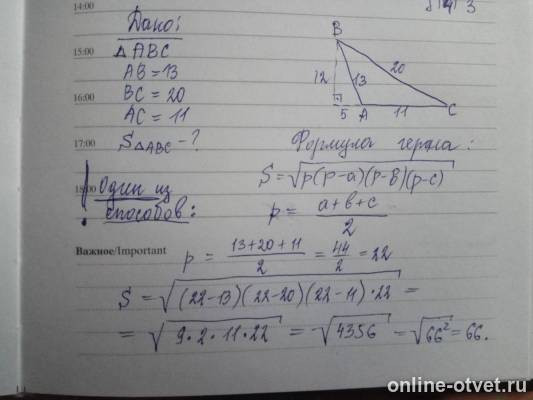 14:00
Дано:
15:00
△ ABC
AB = 13
BC = 20
16:00
AC = 11
17:00
S△ABC - ?
B
12
13
20
5 A 11 C
Формула герона:
S = √p(p-a)(p-b)(p-c)
18:00
! Один из
способов:
p = a+b+c / 2
Важное/Important
p = 13+20+11 / 2 = 44 / 2 = 22
S = √(22-13)(22-20)(22-11)·22 =
= √9·2·11·22 = √4356 = √66² = 66.
online-otvet.ru